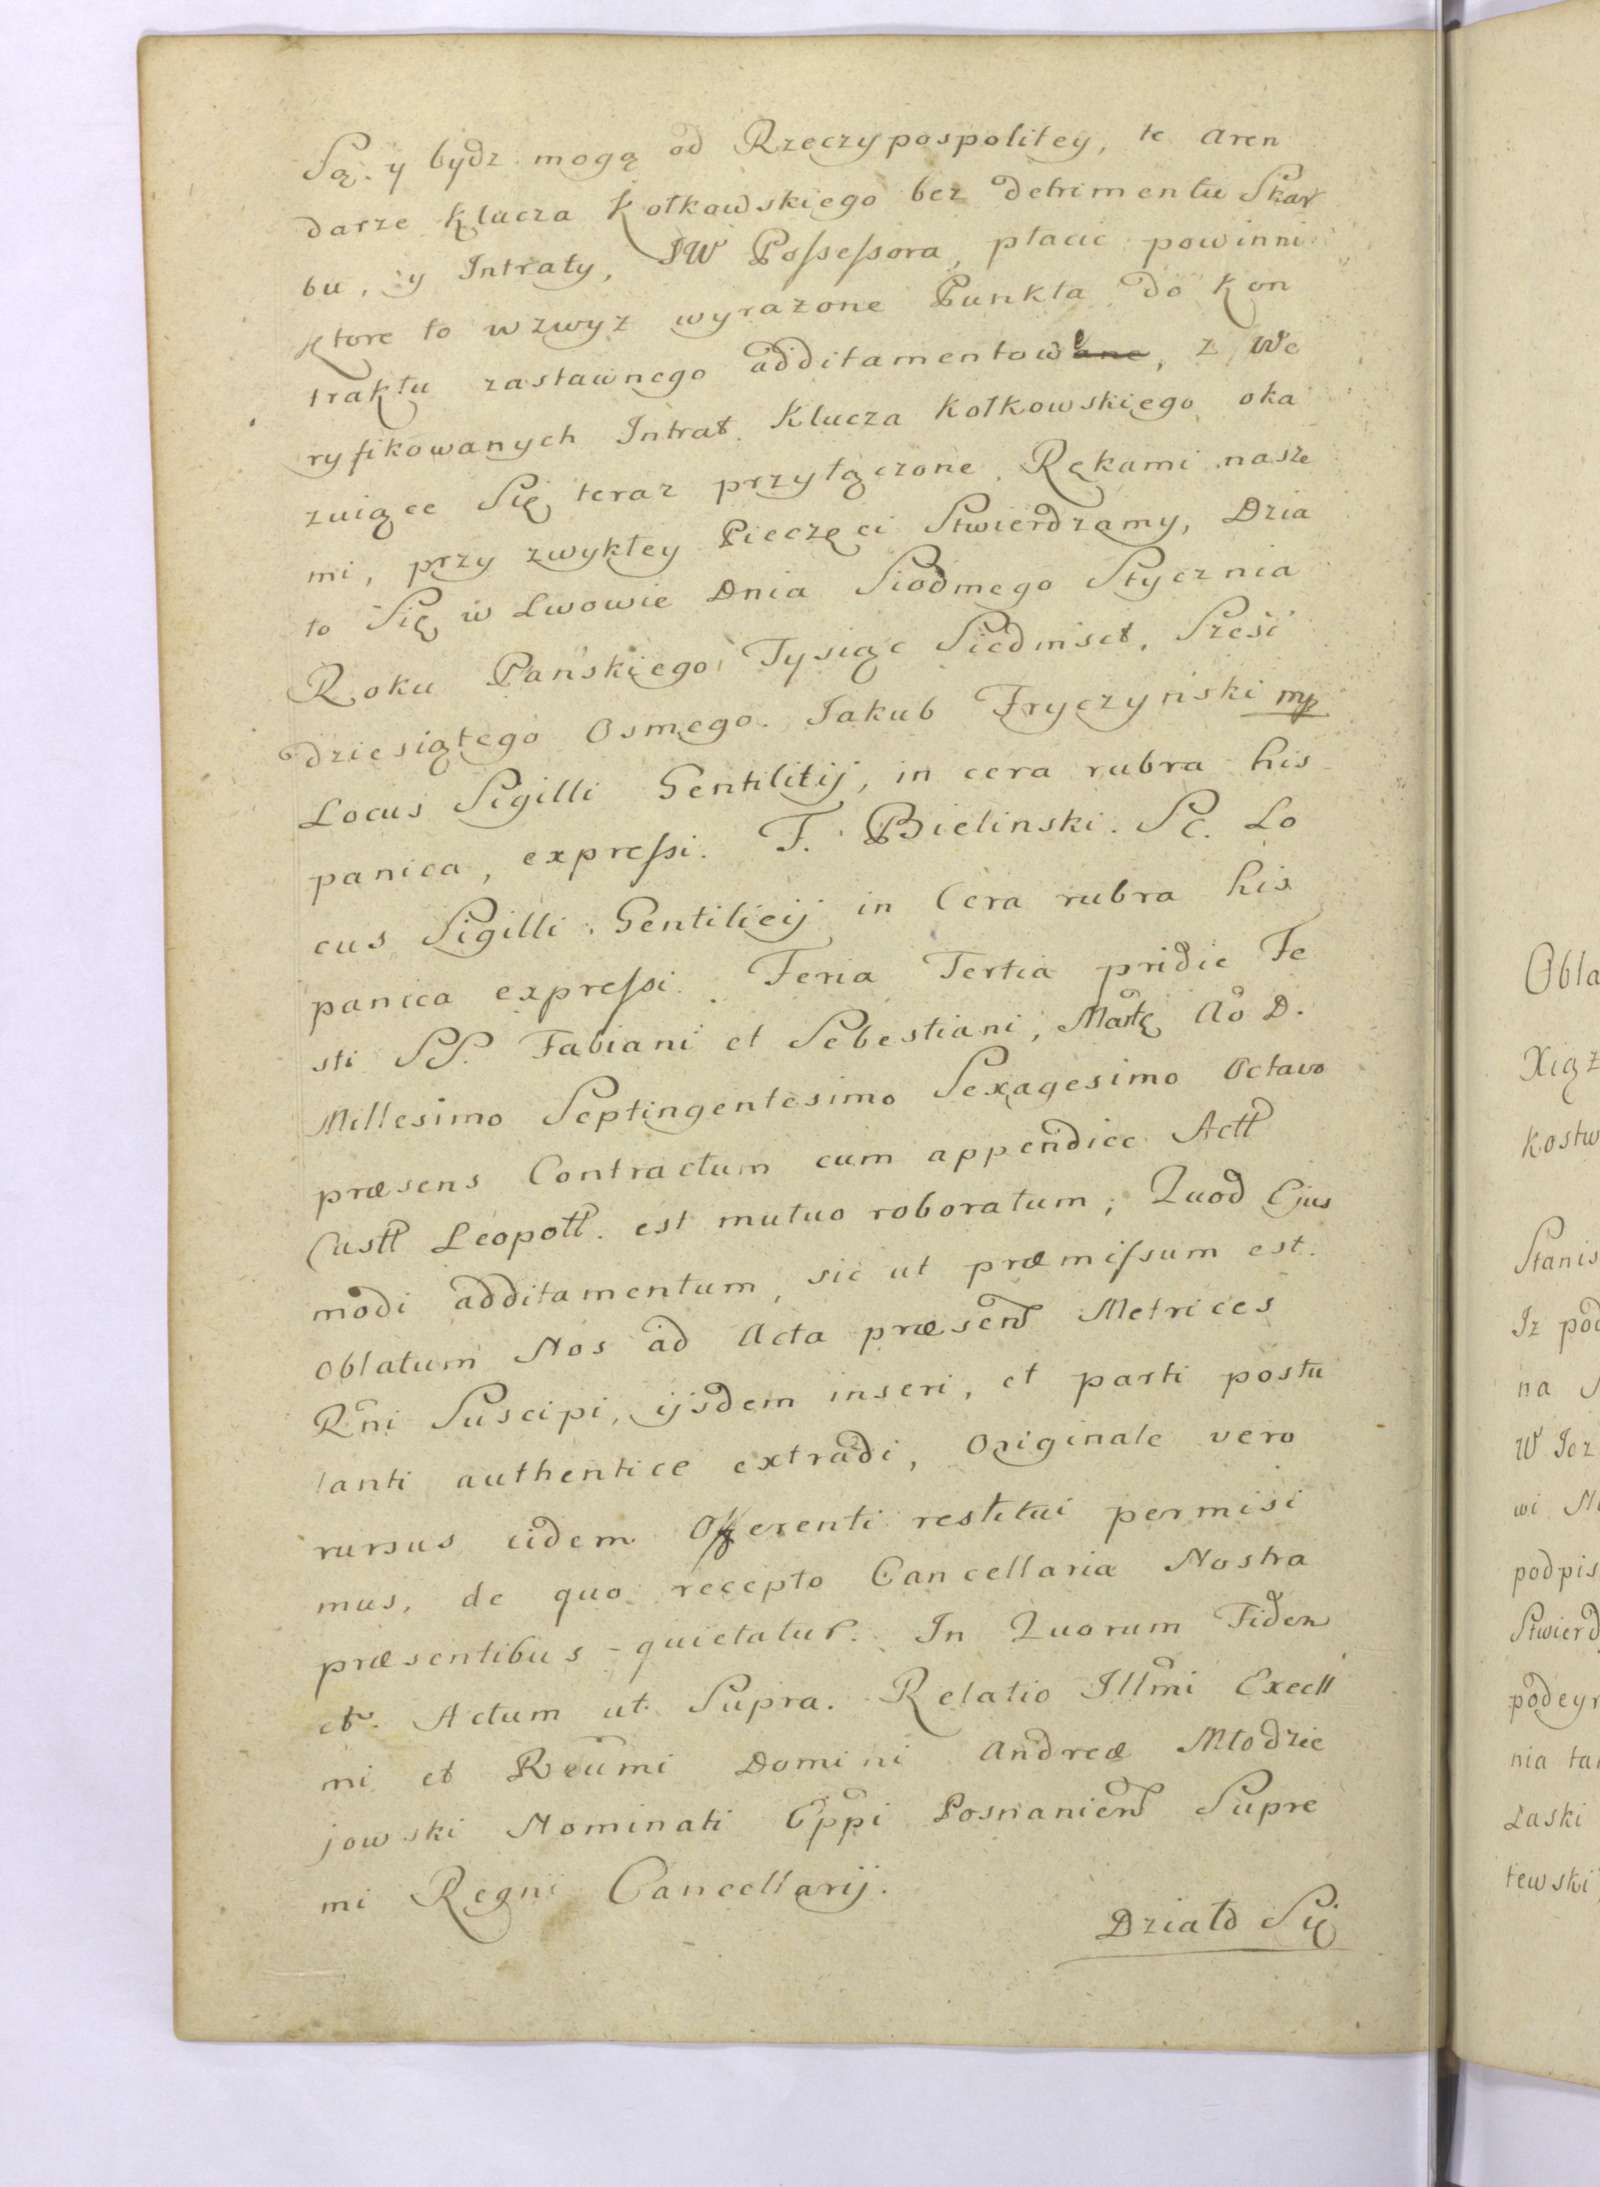 Są. y bydz mogą od Rzeczypospolitey, te Aren
darze Klucza Kołkowskiego bez detrimentu Skar
bu, y Intraty, JW Possessora, płacic powinni
Ktore to wzwyz wyrazone Punkta do Kon
traktu zastawnego additamentowane, z We
ryfikowanych Intrat Klucza Kołkowskiego oka
zuiące Się teraz przyłączone Rękami nasze
mi, przy zwykłey Pieczęci Stwierdzamy, Dzia
to Się w Lwowie Dnia Siodmego Stycznia
Roku Pańskiego Tysiąc Siedmset, Sześć
dziesiątego Osmego. Jakub Fryczyński mp
Locus Sigilli Gentilitij, in cera rubra his
panica, expressi. F. Bielinski. Sc. Lo
cus Sigilli Gentilicij in Cera rubra his
panica expressi. Feria Tertia pridie Fe
sti SS. Fabiani et Sebestiani, Ao D.
Millesimo Septingentesimo Sexagesimo Octavo
præsens Contractum cum appendice Actt
Castt Leopott. est mutuo roboratum; Quod Ejus
modi additamentum, sic ut præmissum est.
Oblatum Nos ad Acta præsen Metrices
Rni Suscipi, ijsdem inseri, et parti postu
lanti authentice extradi, Originale vero
rursus eidem Offerenti restitui permisi
mus, de quo recepto Cancellaria Nostra
præsentibus quietatur. In Quorum Fidem
et. Actum ut Supra. Relatio Illmi Excell
mi et Reumi Domini Andreæ Młodzie
jowski Nominati Eppi Posnanien Supre
mi Regni Cancellarij.
Działo Się
Obla
Xiąż
kostw
Stanis
Iz pod
na S
W Jez
wi
podpis
Stwierd
podeyr
nia tak
Łaski
tewski